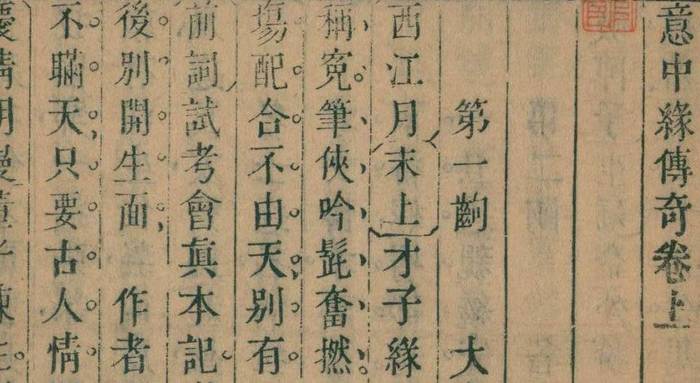 意中緣傳奇卷上
第一齣 大
西江月〔末上〕才子緣
稱寃筆俠吟髭奮撚
塲配合不由天別有
前詞試考會眞本記
後別開生面 作者
不瞞天只要古人情